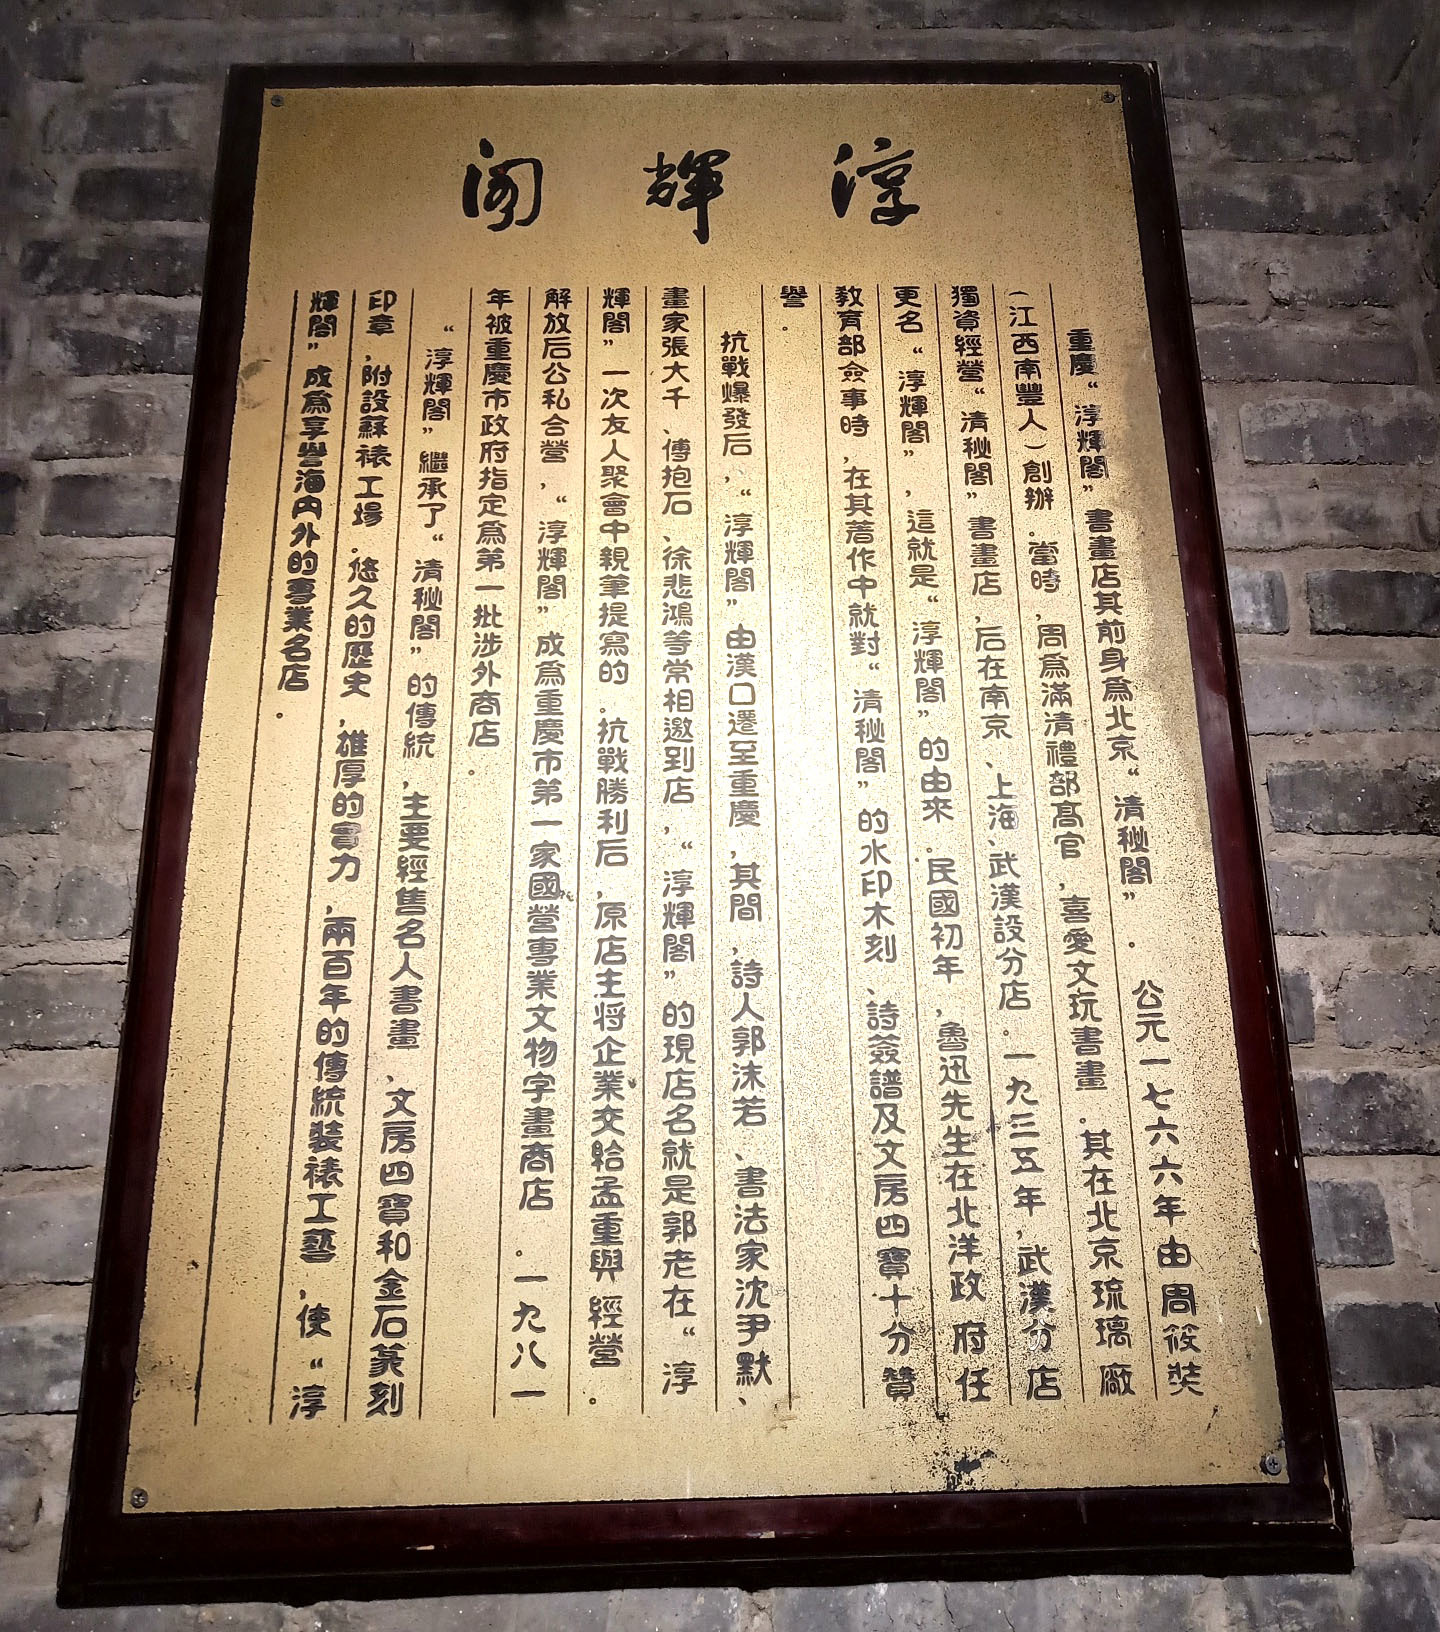 淳輝閣
重慶“淳輝閣”書畫店其前身爲北京“清秘閣”。公元一七六六年由周筱奘
（江西南豐人）創辦.當時，周爲滿清禮部高官，喜愛文玩書畫.其在北京琉璃廠
獨資經營“清秘閣”書畫店，后在南京、上海、武漢設分店。一九三五年，武漢分店
更名“淳輝閣”，這就是“淳輝閣”的由來.民國初年，魯迅先生在北洋政府任
教育部僉事時，在其著作中就對“清秘閣”的水印木刻、詩箋譜及文房四寶十分贊
譽。
抗戰爆發后，“淳輝閣”由漢口遷至重慶，其間，詩人郭沫若、書法家沈尹默、
畫家張大千、傅抱石、徐悲鴻等常相邀到店，“淳輝閣”的現店名就是郭老在“淳
輝閣”一次友人聚會中親筆提寫的。抗戰勝利后，原店主将企業交給孟重與經營。
解放后公私合營，“淳輝閣”成爲重慶市第一家國營專業文物字畫商店。一九八一
年被重慶市政府指定爲第一批涉外商店。
“淳輝閣”繼承了“清秘閣”的傳統，主要經售名人書畫、文房四寶和金石篆刻
印章，附設蘇裱工場.悠久的歷史，雄厚的實力，兩百年的傳統裝裱工藝，使“淳
輝閣”成爲享譽海内外的專業名店。